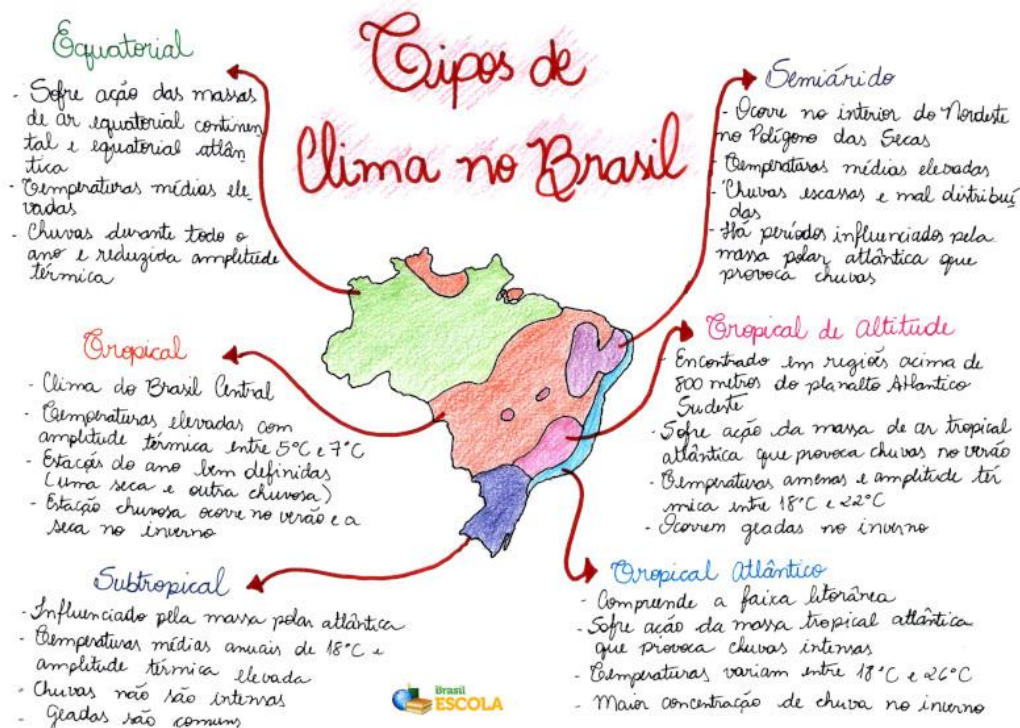 Tipos de
Clima no Brasil
Equatorial
- Sofre ação das massas
de ar equatorial continen
tal e equatorial atlân
tica
- Temperaturas médias ele
vadas
- Chuvas durante todo o
ano e reduzida amplitude
térmica
Tropical
- Clima do Brasil Central
- Temperaturas elevadas com
amplitude térmica entre 5°C e 7°C
- Estações do ano bem definidas
(uma seca e outra chuvosa)
- Estação chuvosa ocorre no verão e a
seca no inverno
Subtropical
- Influenciado pela massa polar atlântica
- Temperaturas médias anuais de 18°C e
amplitude térmica elevada
- Chuvas não são intensas
- Geadas são comuns
Semiárido
- Ocorre no interior do Nordeste
no Polígono das Secas
- Temperaturas médias elevadas
- Chuvas escassas e mal distribuí
das
- Há períodos influenciados pela
massa polar atlântica que
provoca chuvas
Tropical de Altitude
- Encontrado em regiões acima de
800 metros do planalto Atlantico
Sudeste
- Sofre ação da massa de ar tropical
atlântica que provoca chuvas no verão
- Temperaturas amenas e amplitude tér
mica entre 18°C e 22°C
- Ocorrem geadas no inverno
Tropical Atlântico
- Compreende a faixa litorânea
- Sofre ação da massa tropical atlântica
que provoca chuvas intensas
- Temperaturas variam entre 18°C e 26°C
- Maior concentração de chuva no inverno
Brasil
ESCOLA